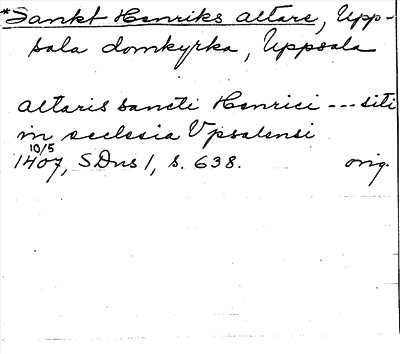 *Sankt Henriks altare, Upp-
sala domkyrka, Uppsala
altaris sancti Henrici --- siti
in ecclesia Vpsalensi
1407 10/5, SDns 1, s. 638. orig.